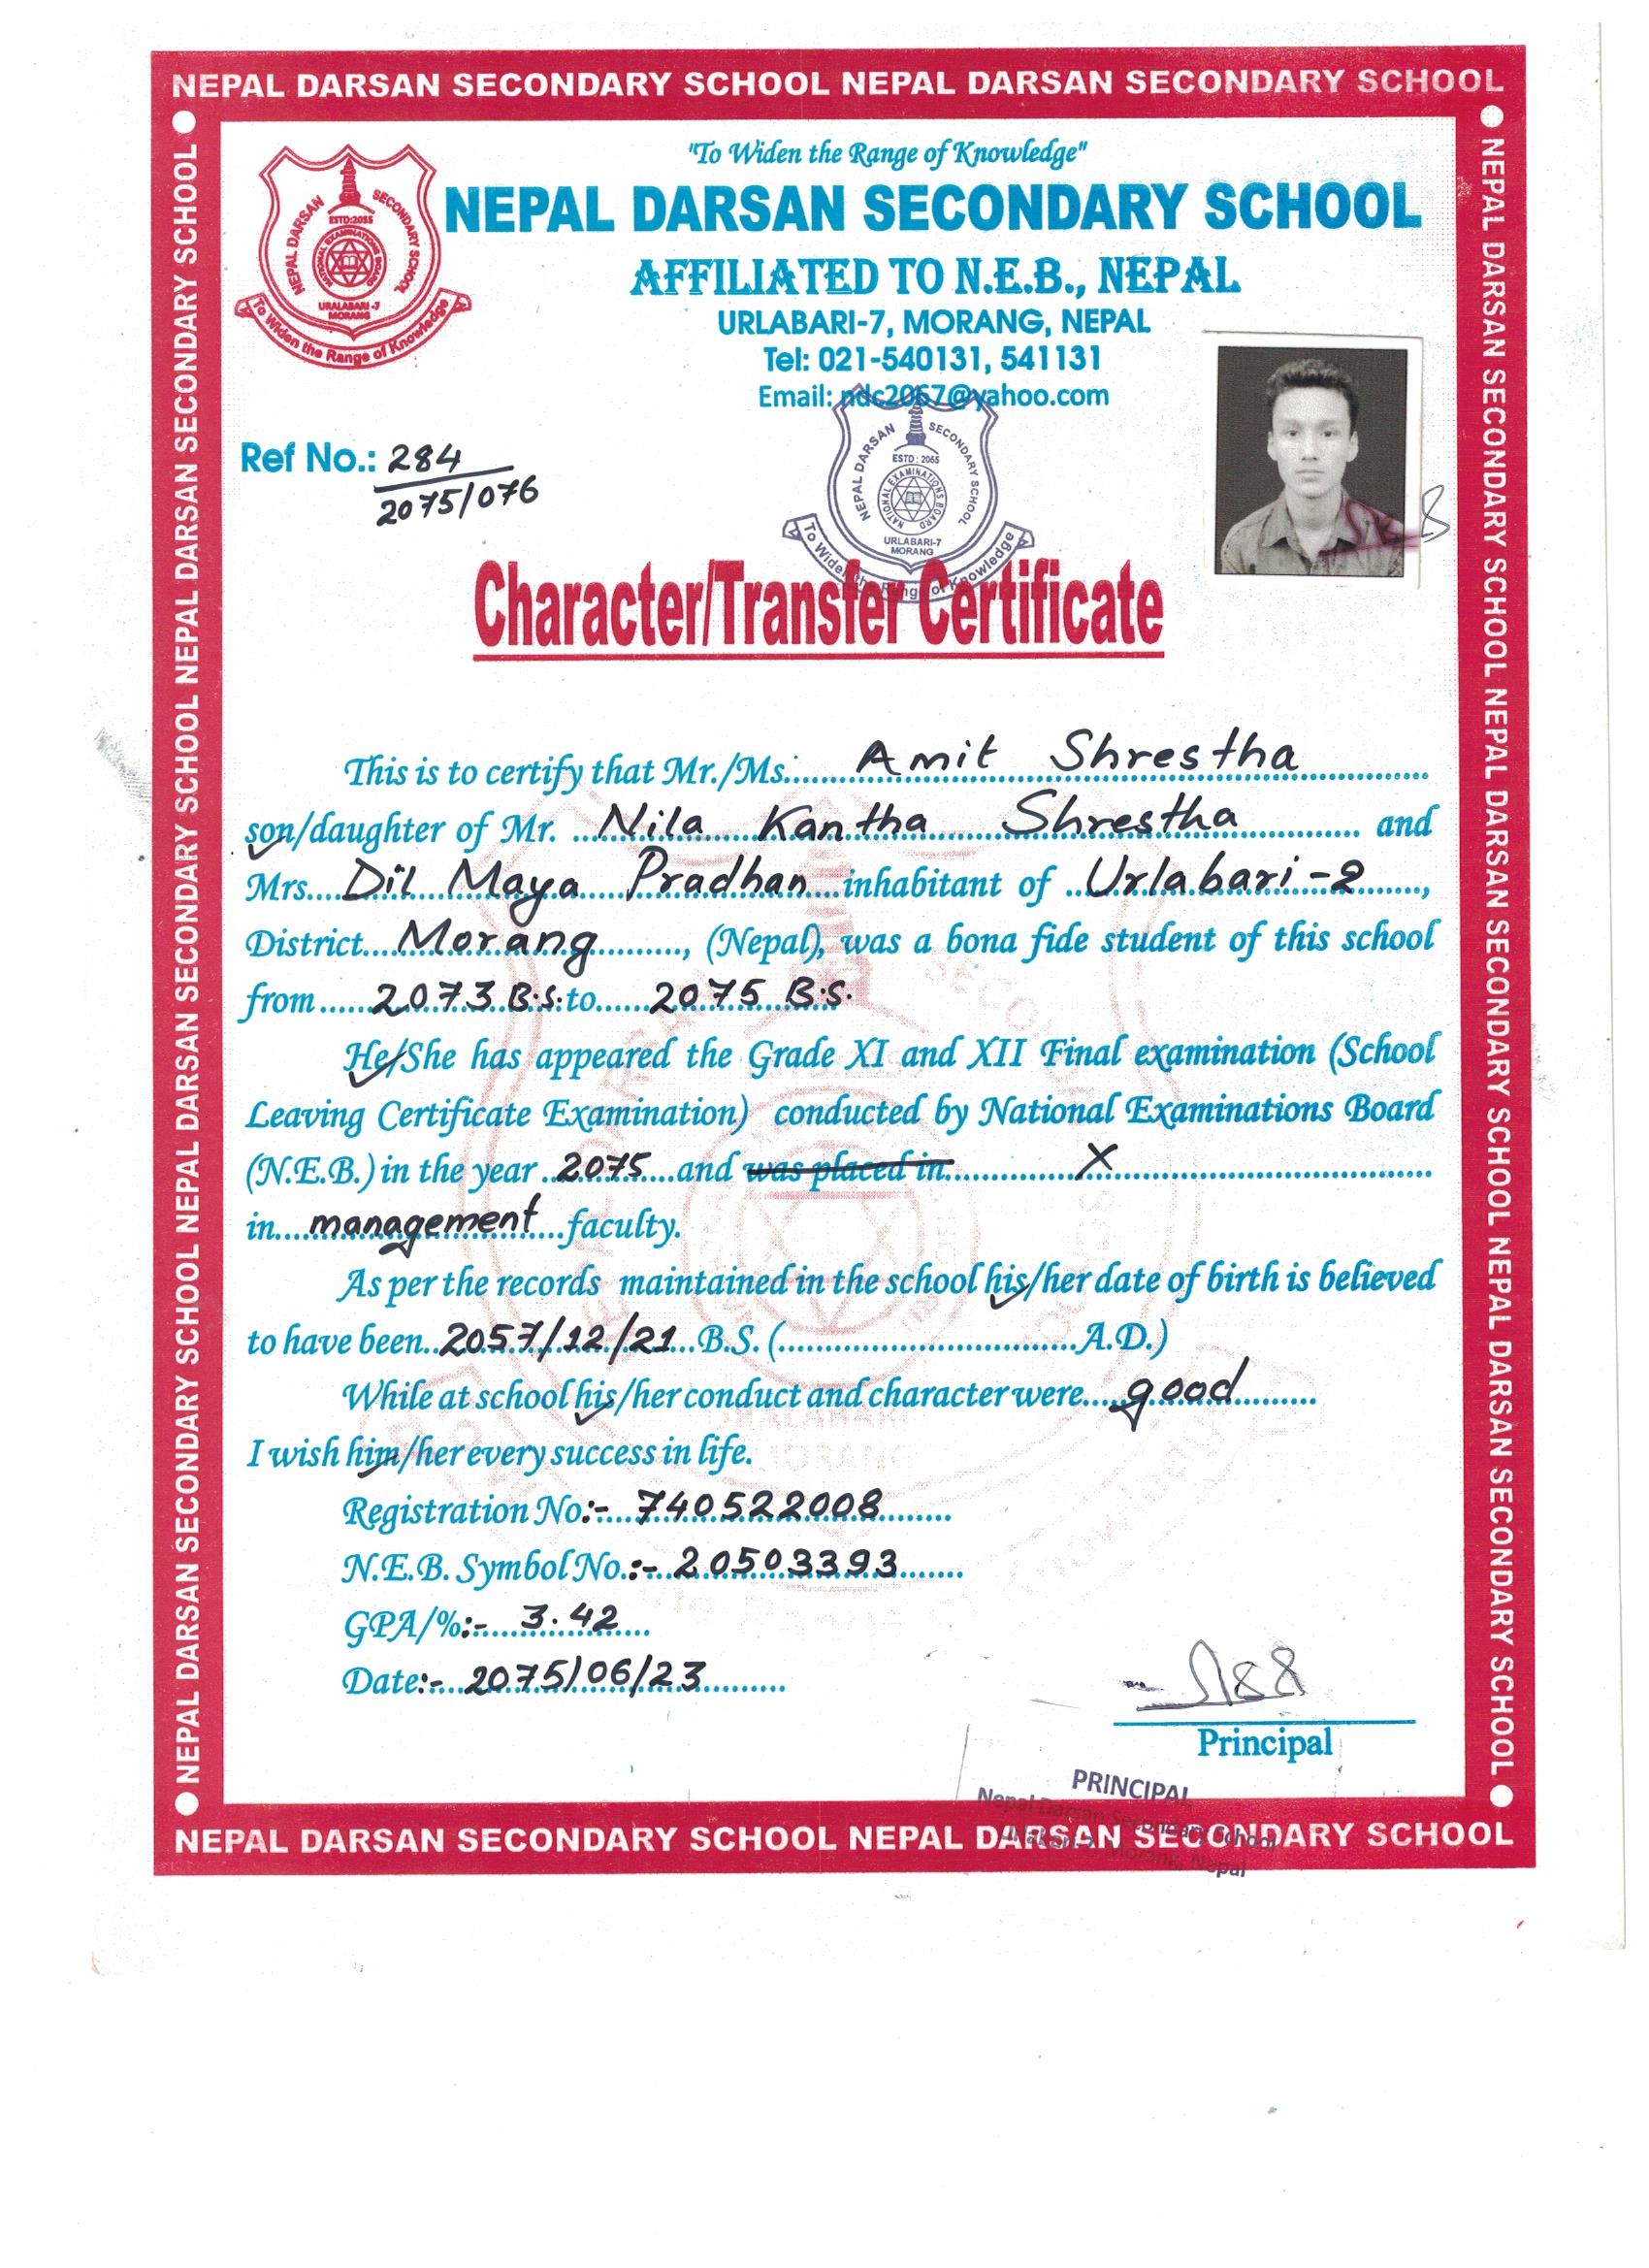 NEPAL DARSAN SECONDARY SCHOOL NEPAL DARSAN SECONDARY SCHOOL
NEPAL DARSAN SECONDARY SCHOOL NEPAL DARSAN SECONDARY SCHOOL NEPAL DARSAN SECONDARY SCHOOL
NEPAL DARSAN SECONDARY SCHOOL NEPAL DARSAN SECONDARY SCHOOL NEPAL DARSAN SECONDARY SCHOOL
NEPAL DARSAN SECONDARY SCHOOL
ESTD:2055
NATIONAL EXAMINATIONS BOARD
URALABARI -7
MORANG
To Widen the Range of Knowledge
"To Widen the Range of Knowledge"
NEPAL DARSAN SECONDARY SCHOOL
AFFILIATED TO N.E.B., NEPAL
URLABARI-7, MORANG, NEPAL
Tel: 021-540131, 541131
Email: ndc2067@yahoo.com
NEPAL DARSAN SECONDARY SCHOOL
ESTD : 2065
NATIONAL EXAMINATIONS BOARD
URLABARI-7
MORANG
To Widen the Range of Knowledge
Ref No.: 284
2075/076
Character/Transfer Certificate
This is to certify that Mr./Ms. Amit Shrestha
son/daughter of Mr. Nila Kantha Shrestha and
Mrs. Dil Maya Pradhan inhabitant of Urlabari-2,
District Morang, (Nepal), was a bona fide student of this school
from 2073 B.S. to 2075 B.S.
He/She has appeared the Grade XI and XII Final examination (School
Leaving Certificate Examination) conducted by National Examinations Board
(N.E.B.) in the year 2075 and was placed in X
in management faculty.
As per the records maintained in the school his/her date of birth is believed
to have been 2057/12/21 B.S. (..............................A.D.)
While at school his/her conduct and character were good
I wish him/her every success in life.
Registration No:- 740522008
N.E.B. Symbol No.:- 20503393
GPA/%:- 3.42
Date:- 2075/06/23
Principal
PRINCIPAL
Nepal Darsan Secondary School
Urlabari-7, Morang, Nepal
NEPAL DARSAN SECONDARY SCHOOL NEPAL DARSAN SECONDARY SCHOOL